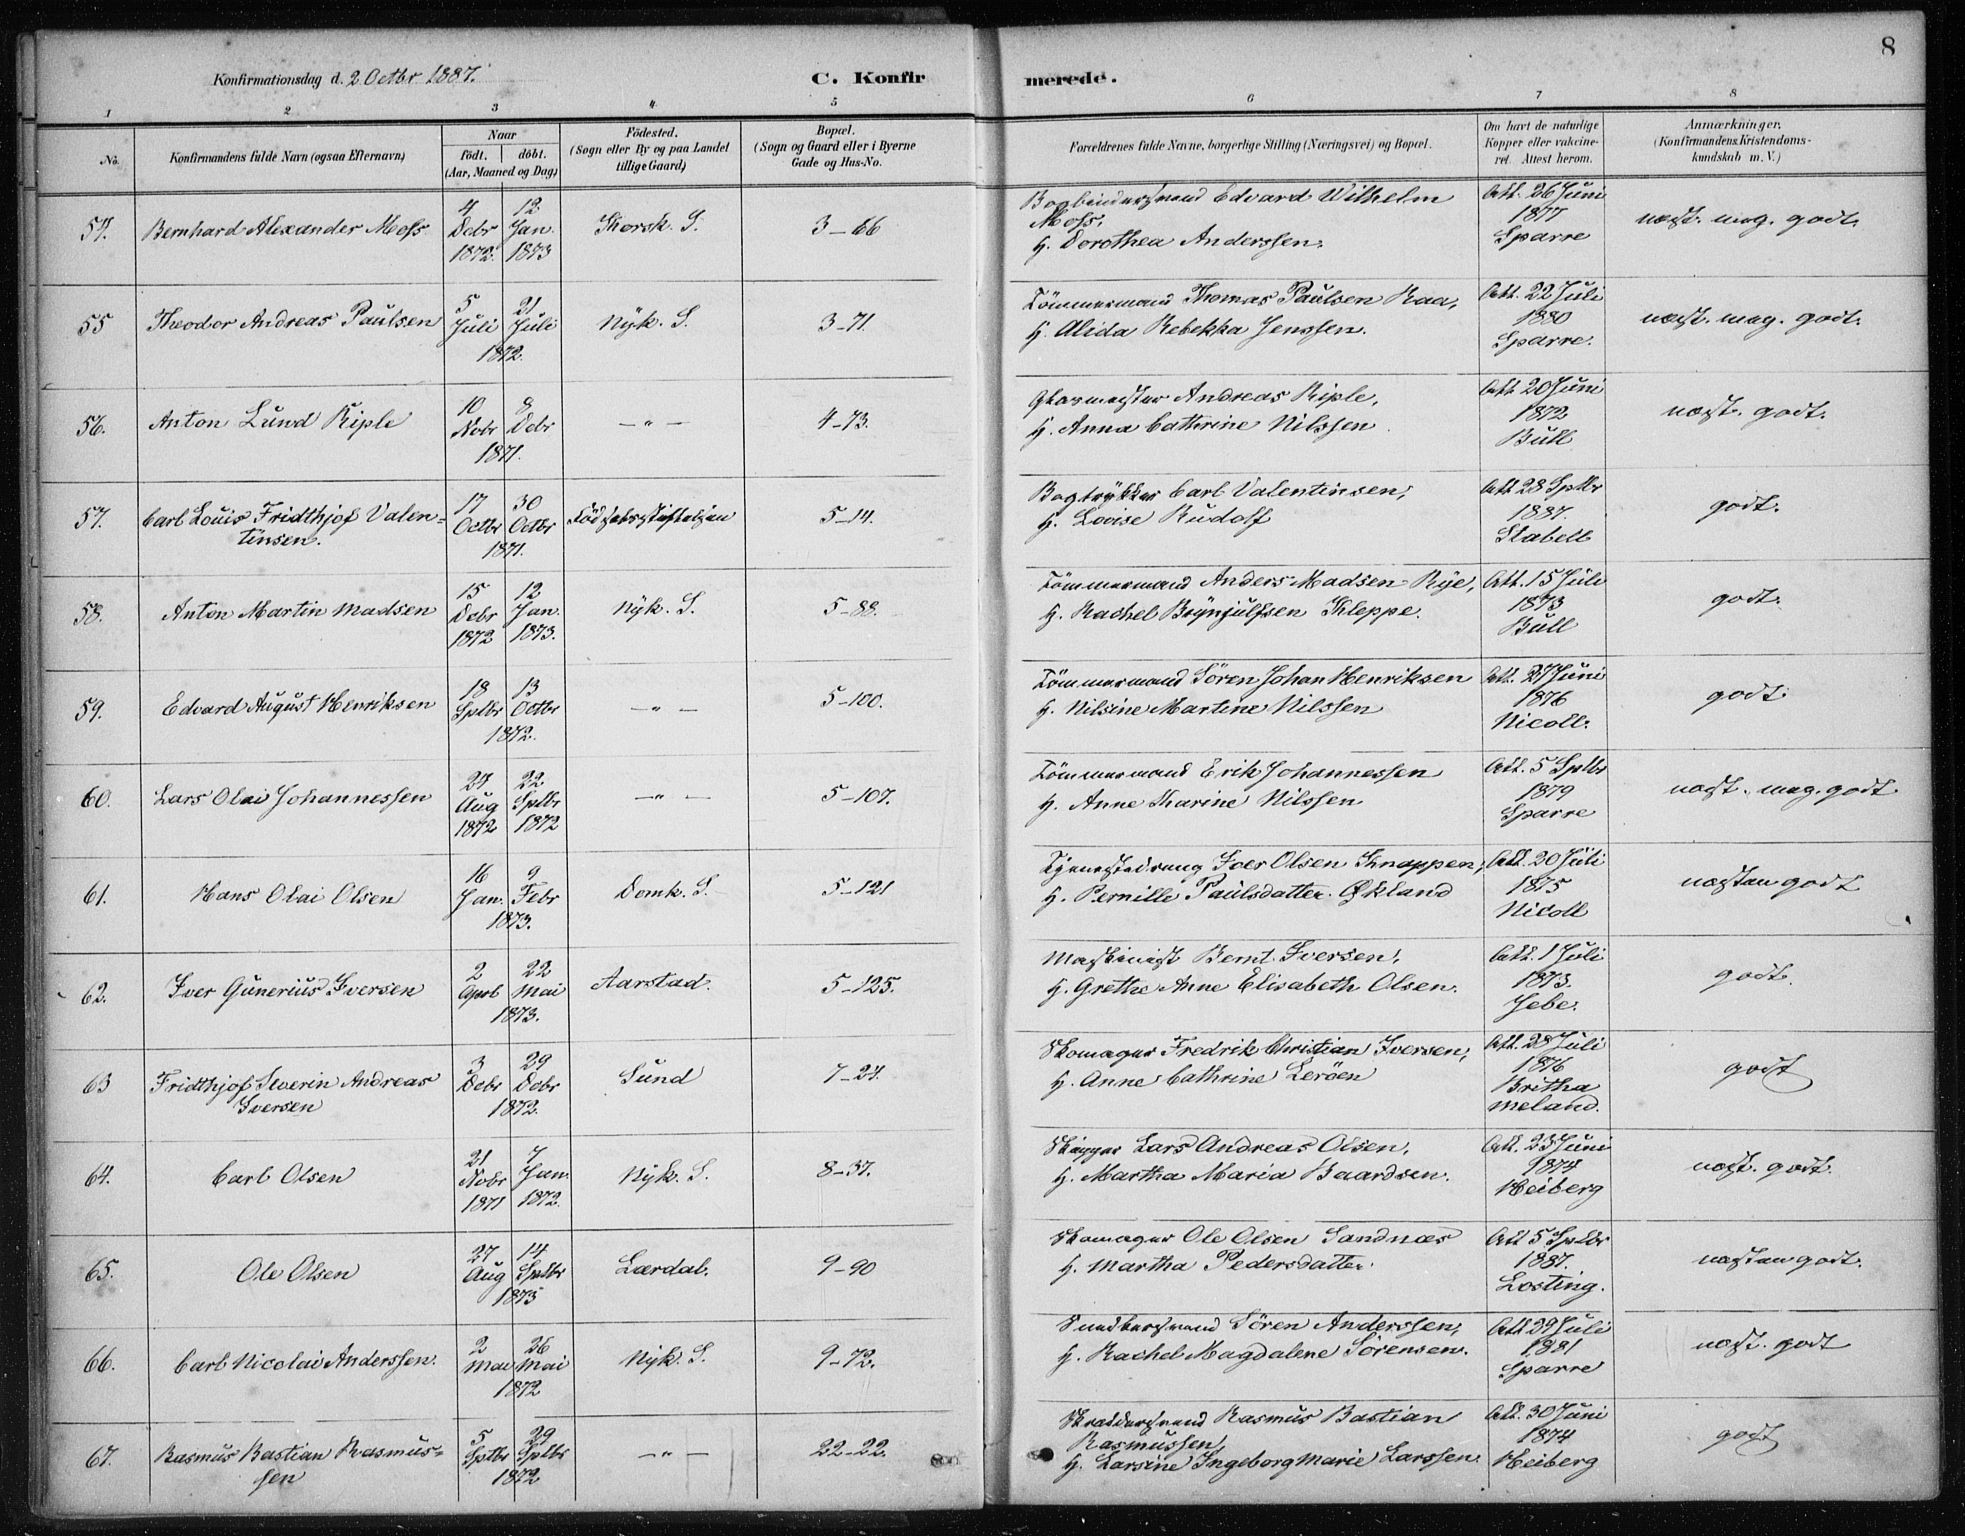 8
Konfirmationsdag d. 2 Octbr 1887.
C. Konfirmerede.
1 2 3 4 5 6 7 8
No.
Konfirmandens fulde Navn (ogsaa Efternavn)
Naar
födt. döbt.
(Aar, Maaned og Dag)
Födested.
(Sogn eller By og paa Landet
tillige Gaard)
Bopæl.
(Sogn og Gaard eller i Byerne
Gade og Hus-No.
Forældrenes fulde Navne, borgerlige Stilling (Næringsvei) og Bopæl.
Om havt de naturlige
Kopper eller vakcine-
ret. Attest herom.
Anmærkninger.
(Konfirmandens Kristendoms-
kundskab m. V.)
54. Bernhard Alexander Moss
4 Debr 1872. 12 Jan. 1873
Korsk. S. 3-66
Bogbindersvend Edvard Wilhelm
Moss,
H. Dorothea Anderssen.
Att. 26 Juni
1877
Sparre
næst. meg. godt.
55 Theodor Andreas Paulsen
5 Juli 21 Juli 1872.
Nyk. S. 3-71.
Tömmermand Thomas Paulsen Raa,
H. Alida Rebekka Jenssen.
Att. 22 Juli
1880
Sparre.
næst. meg. godt.
56. Anton Lund Riple
10 Nobr 8 Debr 1871.
—"— 4-73.
Glasmester Andreas Riple,
H. Anna Cathrine Nilssen.
Att 20 Juni
1872
Bull
næst. godt.
57. Carl Louis Fridthjof Valen-
tinsen.
17 Octbr 30 Octbr 1871.
Födselsstiftelsen 5-14.
Bogtrykker Carl Valentinsen,
H. Lovise Rudolf
Att 28 Sptbr
1887.
Stabell
godt.
58. Anton Martin Madsen
15 Debr 1872 12 Jan. 1873.
Nyk. S. 5-88.
Tömmermand Anders Madsen Rye,
H. Rachel Brynjulfsen Kleppe.
Att. 15 Juli
1873
Bull
godt.
59. Edvard August Henriksen
18 Sptbr 13 Octbr 1872.
—"— 5-100.
Tömmermand Sören Johan Henriksen
H. Nilsine Martine Nilssen
Att. 27 Juni
1876
Nicoll.
godt.
60. Lars Olai Johannessen
27 Aug 1872 22 Sptbr 1872
—"— 5-107.
Tömmermand Erik Johannessen
H. Anne Tharine Nilssen
Att. 5 Sptbr
1879
Sparre
næst. meg. godt.
61. Hans Olai Olsen
16 Jan. 9 Febr 1873.
Domk. S. 5-121
Tjenestedreng Iver Olsen Knappen,
H. Pernille Paulsdatter Økland
Att. 20 Juli
1875
Nicoll
næsten godt
62. Iver Gunerius Iversen
2 April 22 Mai 1873.
Aarstad. 5-125.
Maskinist Bernt Iversen,
H. Grethe Anne Elisabeth Olsen.
Att. 1 Juli
1873.
Jebe.
godt.
63 Fridthjof Severin Andreas
Iversen
3 Debr 29 Debr 1872.
Sund 7-24.
Skomager Fredrik Christian Iversen,
H. Anne Cathrine Leröen
Att. 28 Juli
1876
Britha
Meland.
godt
64. Carl Olsen
21 Nobr 1871 7 Jan. 1872.
Nyk. S. 8-37.
Skipper Lars Andreas Olsen,
H. Martha Maria Baardsen.
Att. 23 Juni
1874
Heiberg
næst. godt.
65. Ole Olsen
27 Aug 14 Sptbr 1873
Lærdal. 9-90
Skomager Ole Olsen Sandnæs
H. Martha Pedersdatter.
Att 5 Sptbr
1887.
Losting.
næsten godt.
66. Carl Nicolai Anderssen.
2 Mai 26 Mai 1872
Nyk. S. 9-72.
Snedkersvend Sören Anderssen,
H. Rachel Magdalene Sörensen.
Att 29 Juli
1881
Sparre
næst. godt
67. Rasmus Bastian Rasmus-
sen
5 Sptbr 29 Sptbr 1872
—"— 22-22.
Skræddersvend Rasmus Bastian
Rasmussen,
H. Larsine Ingeborg Marie Larssen.
Att. 30 Juni
1874
Heiberg
godt